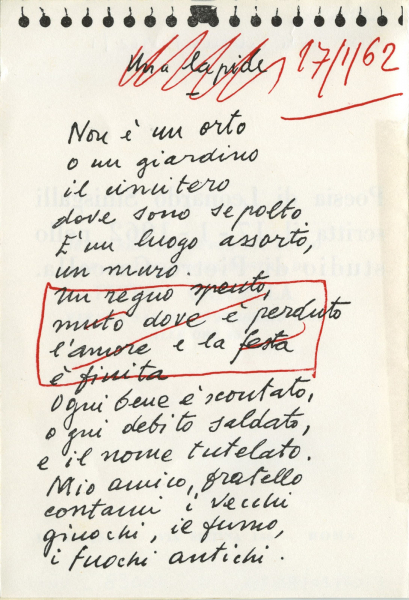 Una lapide
17/1/62
Non è un orto
o un giardino
il cimitero
dove sono sepolto.
È un luogo assorto,
un muro.
Un regno spento,
muto dove è perduto
l'amore e la festa
è finita
Ogni bene è scontato,
ogni debito saldato,
e il nome tutelato.
Mio amico, fratello
contami i vecchi
giuochi, il fumo,
i fuochi antichi.